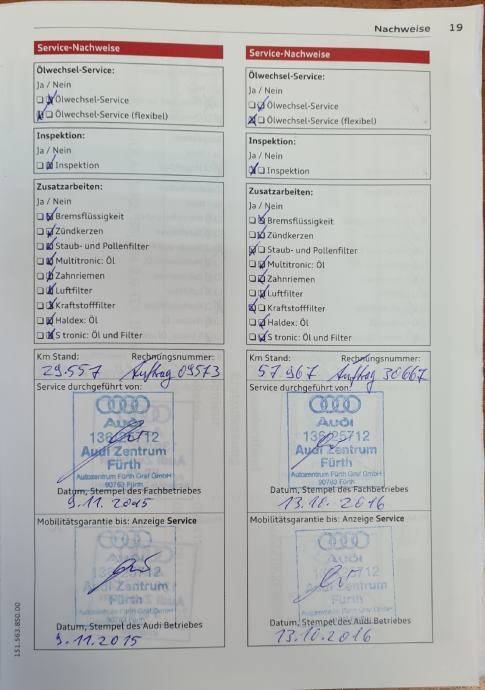 Nachweise 19
Service-Nachweise
Ölwechsel-Service:
Ja / Nein
Ölwechsel-Service
Ölwechsel-Service (flexibel)
Inspektion:
Ja / Nein
Inspektion
Zusatzarbeiten:
Ja / Nein
Bremsflüssigkeit
Zündkerzen
Staub- und Pollenfilter
Multitronic: Öl
Zahnriemen
Luftfilter
Kraftstofffilter
Haldex: Öl
S tronic: Öl und Filter
Km Stand: Rechnungsnummer:
29.557 Auftrag 09573
Service durchgeführt von:
Audi
Audi Zentrum
Fürth
Autozentrum Fürth Graf GmbH
90763 Fürth
Datum, Stempel des Fachbetriebes
9.11.2015
Mobilitätsgarantie bis: Anzeige Service
Audi
Audi Zentrum
Fürth
Datum, Stempel des Audi Betriebes
9.11.2015
Service-Nachweise
Ölwechsel-Service:
Ja / Nein
Ölwechsel-Service
Ölwechsel-Service (flexibel)
Inspektion:
Ja / Nein
Inspektion
Zusatzarbeiten:
Ja / Nein
Bremsflüssigkeit
Zündkerzen
Staub- und Pollenfilter
Multitronic: Öl
Zahnriemen
Luftfilter
Kraftstofffilter
Haldex: Öl
S tronic: Öl und Filter
Km Stand: Rechnungsnummer:
57967 Auftrag 30667
Service durchgeführt von:
Audi
Audi Zentrum
Fürth
Autozentrum Fürth Graf GmbH
90763 Fürth
Datum, Stempel des Fachbetriebes
13.10.2016
Mobilitätsgarantie bis: Anzeige Service
Audi
Audi Zentrum
Fürth
Datum, Stempel des Audi Betriebes
13.10.2016
151.563.850.00